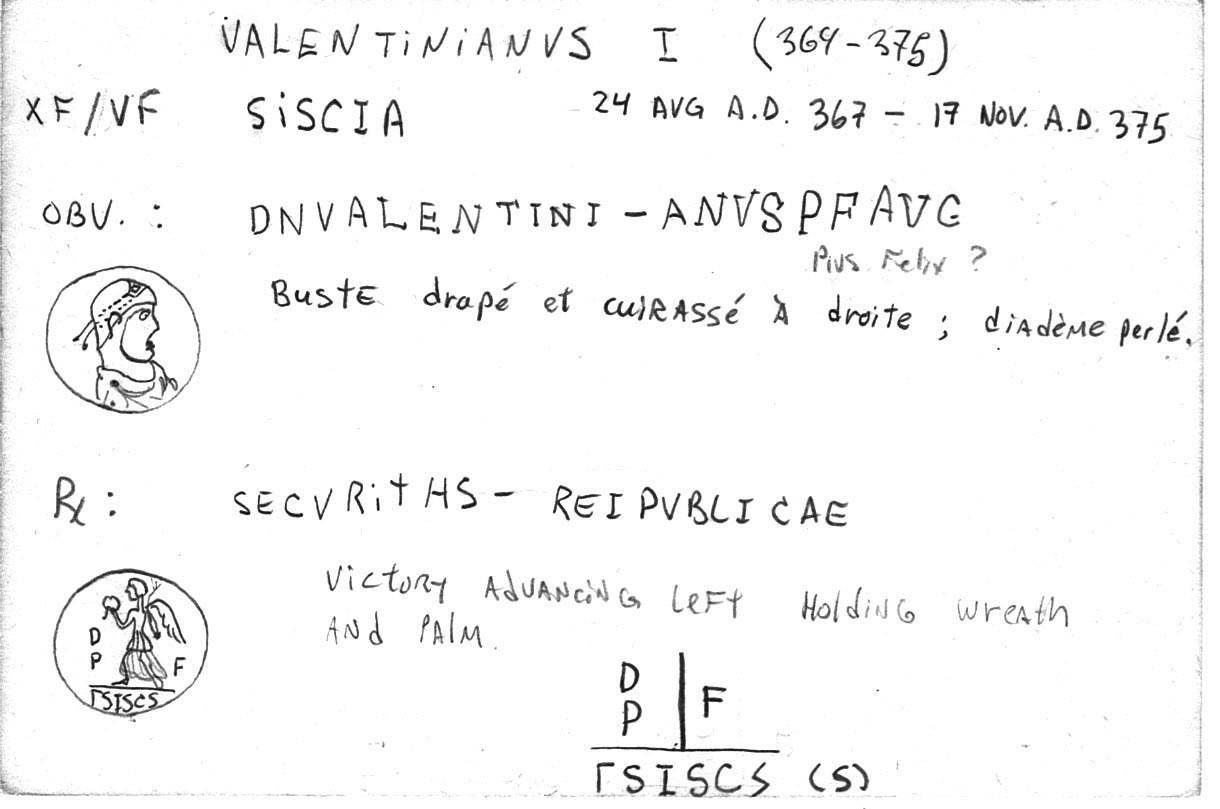 VALENTINIANVS I (364-375)
XF/VF SISCIA 24 AVG A.D. 367 - 17 NOV. A.D. 375
OBV. : DNVALENTINI - ANVSPFAVG
Pius Felix ?
Buste drapé et cuirassé à droite ; diadème perlé.
R : SECVRITHS - REIPVBLICAE
Victory advancing left holding wreath
and palm.
D
P F
ΓSISCS
D
P F
ΓSISCS (S)